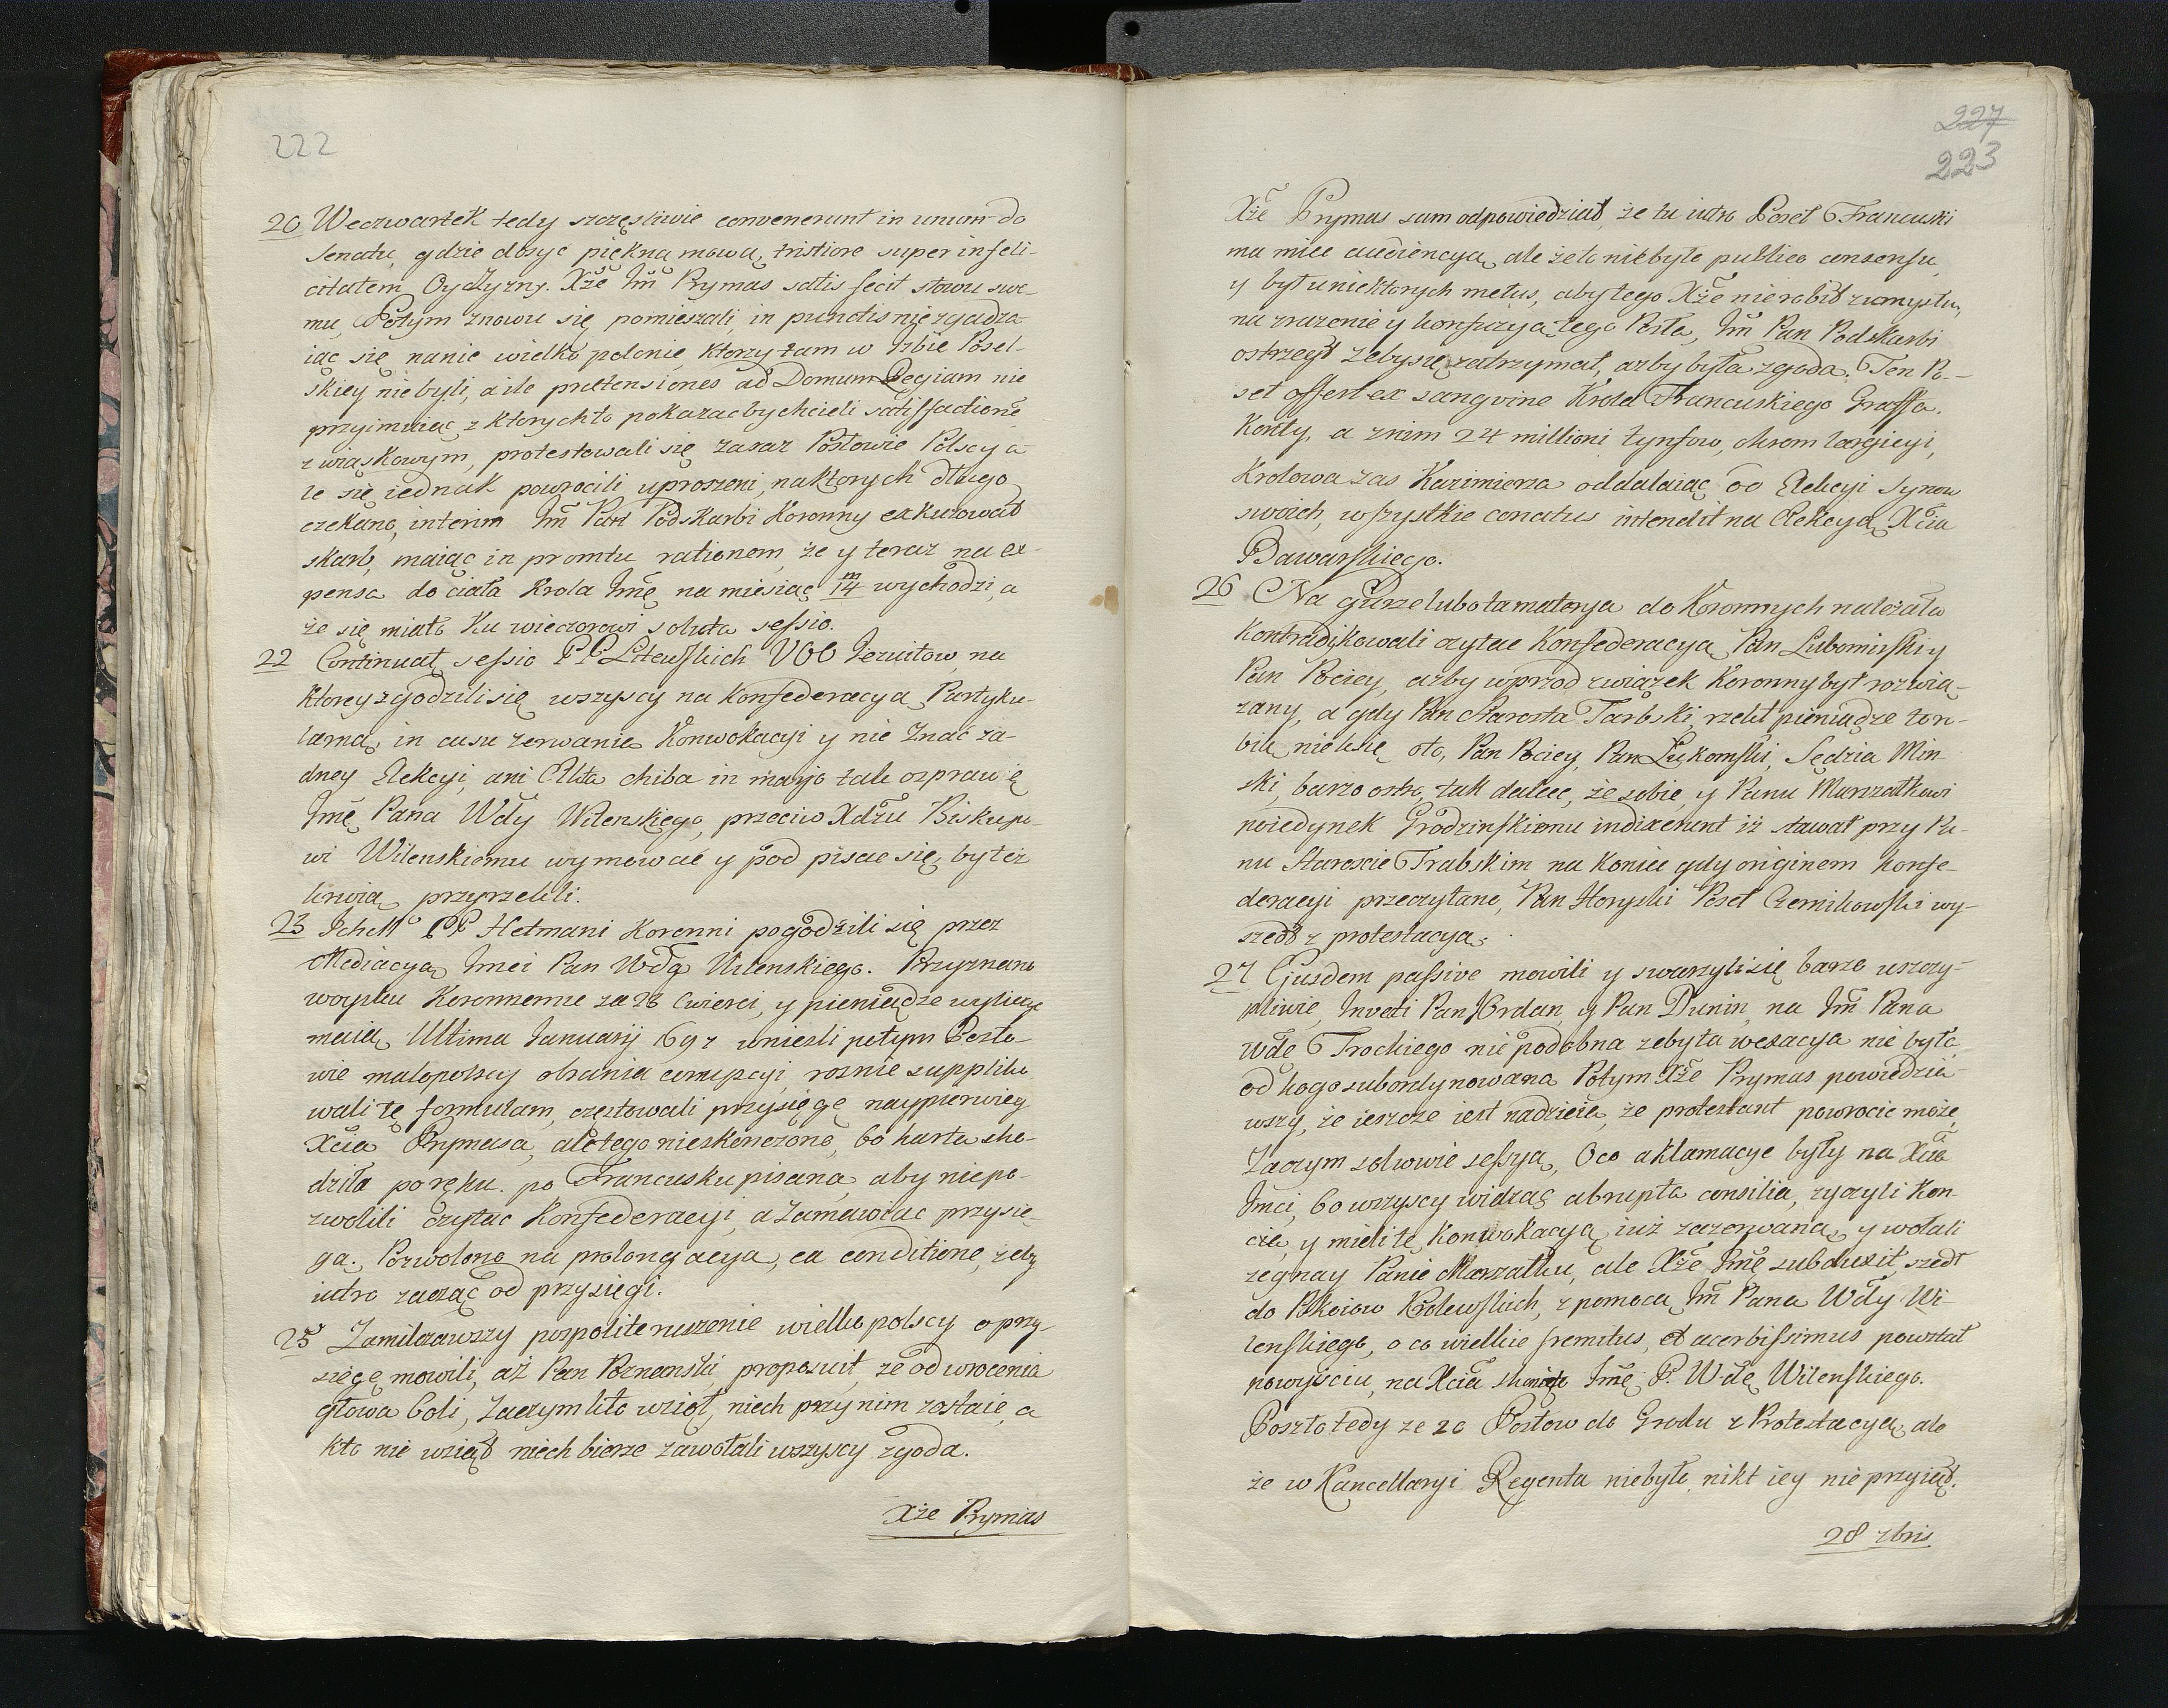 222
20 Weczwartek tedy szczęsliwie convenerunt in unum do
Senatu, gdzie dosyc piękną mową, tristiore super infeli-
citatem Oyczyzny. Xże Jm̃ Prymas satis fecit słowu swe-
mu, Potym znowu się pomieszali, in punctis niezgadza
iąc się nanie wielko polonie, ktorzy tam w Izbie Posel-
skiey niebyli, a ile prætensiones ad Domum Regiam nie
przyimuiąc, z ktorychto pokazac by chcieli satisfactionẽ
związkowym, protestowali się zaraz Posłowie Polscy a
le się iednak powrocili uproszeni, naktorych długo
czekano, interim Jm̃ Pan Podskarbi Koronny exkuzował
skarb, maiąc in promtu rationem, że y teraz na ex-
pensa do ciała Krola Jmę na miesiąc 14 m wychodzi, a
że się miało ku wieczorowi soluta sessio.
22 Continuat sessio PP Litewskich UOO Jezuitow, na
ktorey zgodzili się wszyscy na Konfederacyą Partyku-
larną in casu zerwania Konwokacyi y nie znać ża-
dney Elekcyi, ani Akta chiba in marjo tale ozprawię
Jmę Pana Wdy Wilenskiego, przeciw Xdzu Biskupo-
wi Wilenskiemu wymowac y pod pisac się, by też
krwią przyrzekli.
23 Ichm PP Hetmani Koronni pogodzili się przez
Mediacyą Jmci Pan Wdę Wilenskiego. Przyznano
woysku Koronnemu za 28 cwierci, y pieniądze wyliczyc
maią Ultima Januarij 1697 wniesli potym Posło-
wie małopolscy obrania corrupcyi, roznie supplika
wali tę formułam, częstowali przysięgę naypierwiey
Xcia Prymasa, ale tego nieskonczono, bo karta cho-
dziła po ręku. po Francusku pisana, aby niepo-
zwolili czytac Konfederacyi, a zamawiac przysię-
gą. Pozwolono na prolongacyą, ea conditione, żeby
iutro zacząc od przysięgi.
25 Zamilczawszy pospolite ruszenie wielko polscy o przy-
sięgę mowili, aż Pan Poznanski, proposuit, że od wrocenia
głowa boli, Zaczym kto wziął, niech przy nim zostaie, a
kto nie wziął niech bierze zawołali wszyscy zgoda.
Xże Prymas
227
223
Xże Prymas sam odpowiedział, że tu iutro Poseł Francuski
ma miec audiencyą, ale że to niebyło publico consensu,
y był u niektorych metus, aby tego Xże nierobił z umysłu,
na zrazenie y konfuzyą tego Posła, Jm̃ Pan Podskarbi
ostrzegł żeby się zatrzymał, azby była zgoda. Ten Po-
seł offert ex sangvine Krola Francuskiego Graffa.
Konty, a z nim 24 millioni tynfow, okrom largicyi,
Krolowa zas Kazimierza oddalaiąc od Elekcyi Synow
swoich, wszystkie conatus intendit na Elekcyą Xcia
Bawarskiego.
26 Na gurze lubo ta materya do Koronnych należała
Kontradikowali czytac Konfederacyą, Pan Lubomirski y
Pan Pociey, ażby wprzod związek Koronny był rozwią-
zany, a gdy Pan Starosta Trabski, rzekł pieniądze wor-
bią nielzię oto, Pan Pociey, Pan Łukomski, Sędzia Min-
ski, barzo ostro, tak dalece, że sobie, y Panu Marszałkowi
poiedynek Grodzinskiemu indixerunt iż stawał przy Pa-
nu Staroscie Trabskim na koniec gdy originem konfe-
deracyi przeczytano, Pan Horyski Poseł Czernihowski wy-
szedł z protestacyą.
27 Ejusdem passive mowili y swarzyli się barzo uszczy-
pliwie, Invecti Pan Ordan, y Pan Dunin, na Jm̃ Pana
Wdę Trockiego nie podobna zeby ta wexacya nie była
od kogo subordynowana Potym Xże Prymas powiedzia-
wszy, że ieszcze iest nadzieia, że protestant powrocic może
Zaczym solwowie sessyą, Oco aklamacye były na Xcia
Jmci, bo wszyscy widząc abrupta consilia, zyczyli kon-
cza, y mieli tę Konwokacyą iuż zazerwaną, y wołali
zegnay Panie Marszałku, ale Xże Jmę subduxit, szedł
do Pokoiow Krolewskich, z pomocą Jm̃ Pana Wdy Wi-
lenskiego, o co wielkie fremitus, et acerbissimus powstał
powyisciu, na Xcia Jmę P. Wdę Wilenskiego.
Poszło tedy ze 20 Posłow do Grodu z Protestacyą, ale
że w Kancellaryi Regenta niebyło, nikt iey nie przyiął.
28 7bris